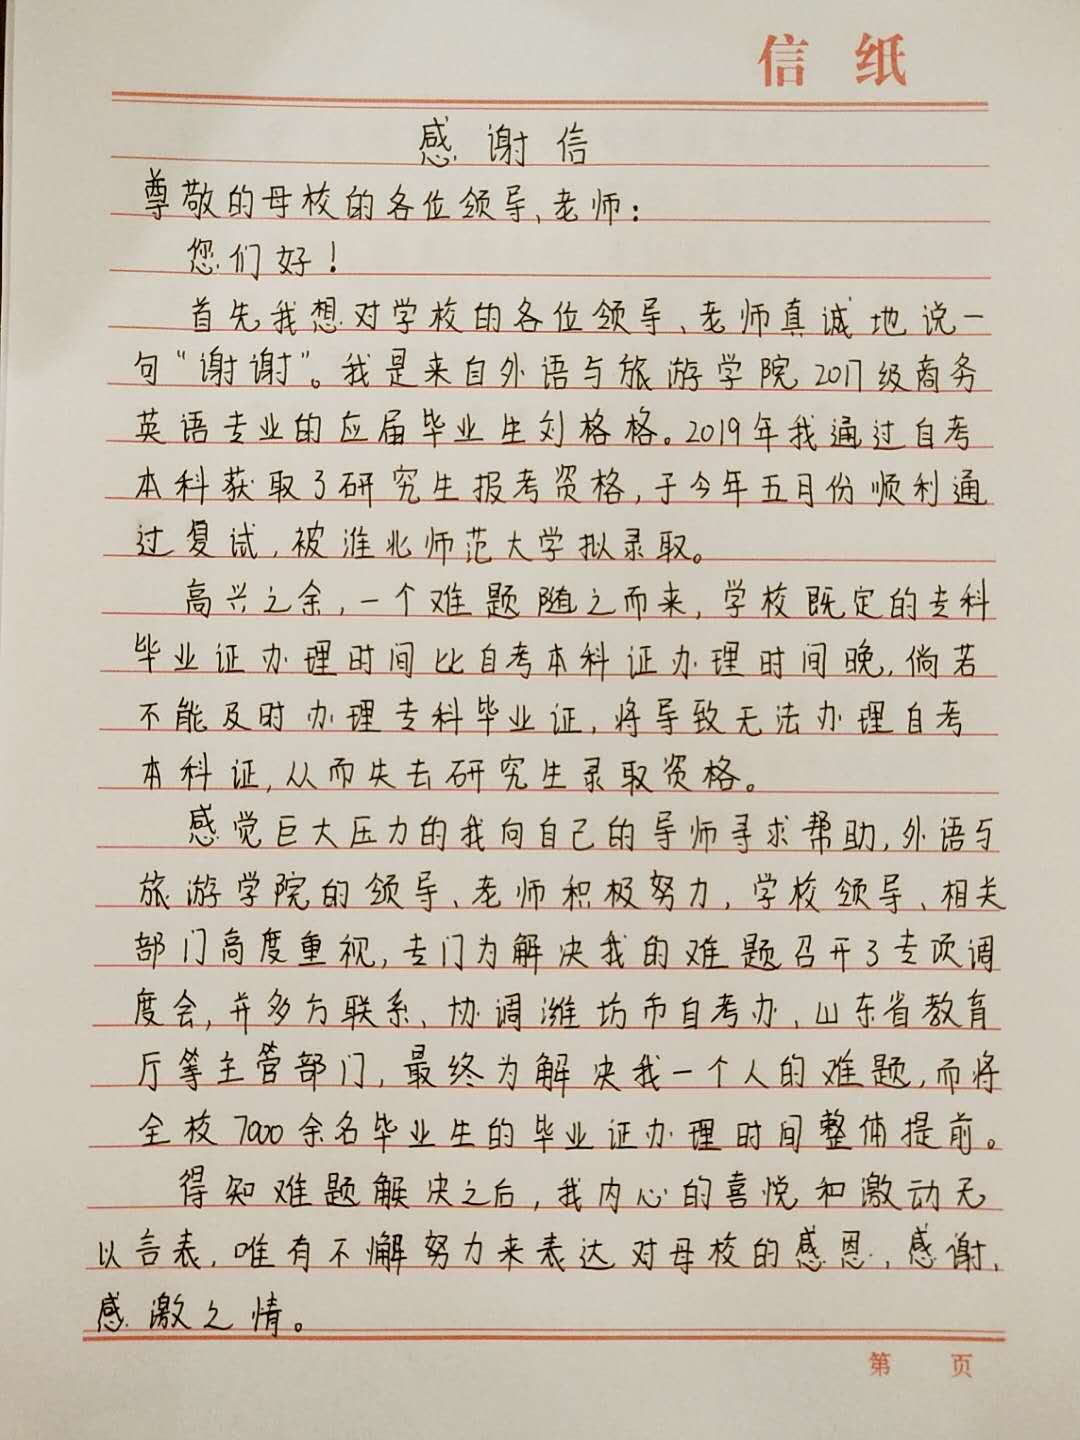 信 纸
感谢信
尊敬的母校的各位领导、老师:
您们好!
首先我想对学校的各位领导、老师真诚地说一
句“谢谢”。我是来自外语与旅游学院2017级商务
英语专业的应届毕业生刘格格。2019年我通过自考
本科获取了研究生报考资格,于今年五月份顺利通
过复试,被淮北师范大学拟录取。
高兴之余,一个难题随之而来,学校既定的专科
毕业证办理时间比自考本科证办理时间晚,倘若
不能及时办理专科毕业证,将导致无法办理自考
本科证,从而失去研究生录取资格。
感觉巨大压力的我向自己的导师寻求帮助,外语与
旅游学院的领导、老师积极努力,学校领导、相关
部门高度重视,专门为解决我的难题召开了专项调
度会,并多方联系、协调潍坊市自考办、山东省教育
厅等主管部门,最终为解决我一个人的难题,而将
全校7000余名毕业生的毕业证办理时间整体提前。
得知难题解决之后,我内心的喜悦和激动无
以言表,唯有不懈努力来表达对母校的感恩、感谢、
感激之情。
第 页